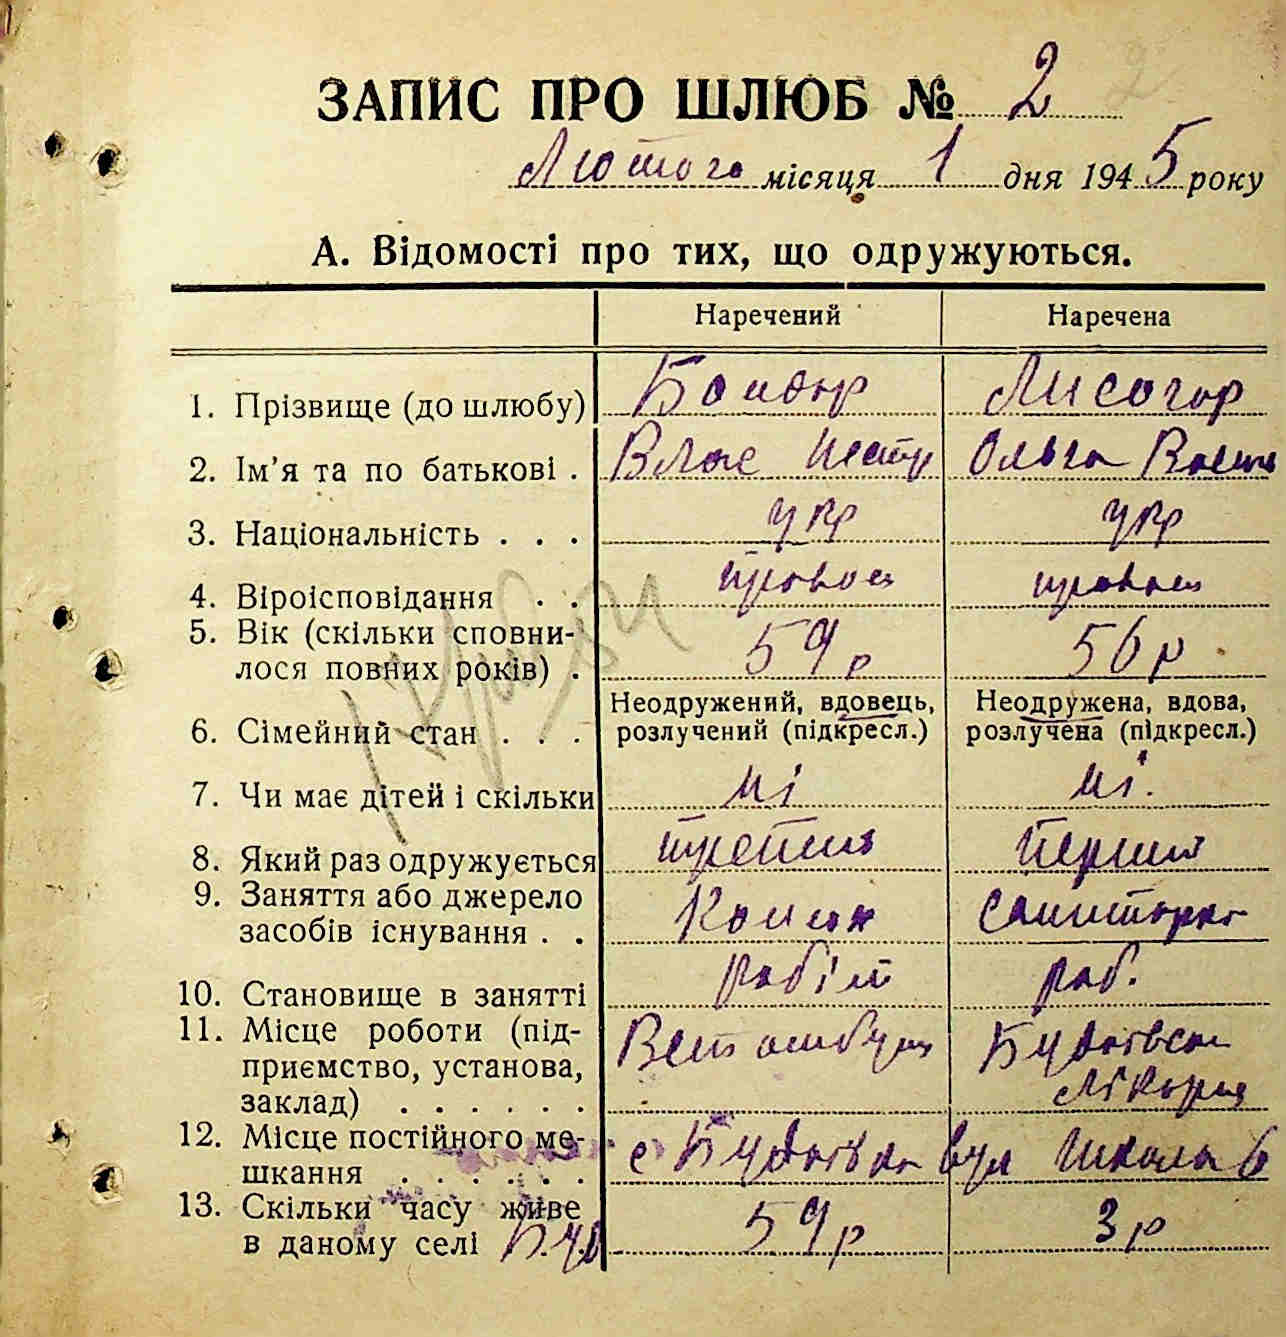 ЗАПИС ПРО ШЛЮБ № 2
Лютого місяця 1 дня 1945 року
А. Відомості про тих, що одружуються.
Наречений Наречена
1. Прізвище (до шлюбу) Бондар Лисогор
2. Ім'я та по батькові . Влас Нестр Ольга
3. Національність . . . укр укр
4. Віроісповідання . . правос правос
5. Вік (скільки сповни-
лося повних років) . 59 р 56 р.
6. Сімейний стан . . . Неодружений, вдовець, розлучений (підкресл.) Неодружена, вдова, розлучена (підкресл.)
7. Чи має дітей і скільки ні ні.
8. Який раз одружується третий Перший
9. Заняття або джерело
засобів існування . . Конюх санитарка
10. Становище в занятті робіт роб.
11. Місце роботи (під-
приємство, установа,
заклад) . . . . . . Лікарня
12. Місце постійного ме-
шкання . . . . . . с вул Школьа 6
13. Скільки часу живе
в даному селі Буд 59 р 3 р